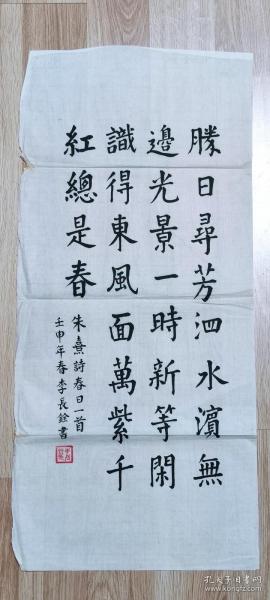 勝日尋芳泗水濱無
邊光景一時新等閑
識得東風面萬紫千
紅總是春
朱熹詩春日一首
壬申年春李長銓書
孔夫子旧书网